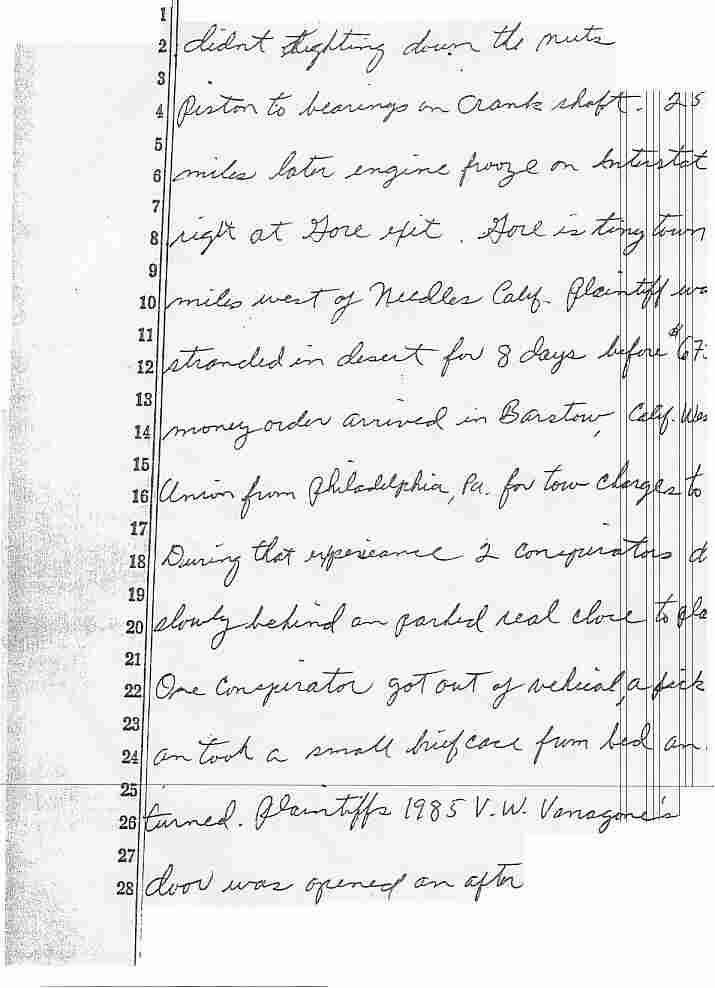 1
2 didnt thighting down the nuts
3
4 Piston to bearings on Crank shaft. 25
5
6 miles later engine frooze on Interstat
7
8 right at Gore exit. Gore is tiny town
9
10 miles west of Needles Calif. Plaintiff wa
11
12 stranded in desert for 8 days before $67
13
14 money order arrived in Barstow, Calif. Wes
15
16 Union from Philadelphia, Pa. for tow charges to
17
18 During that experieance 2 conspirators d
19
20 slowly behind an parked real close to pla
21
22 One Conspirator got out of vehical, a pick
23
24 an took a small briefcase from bed an
25
26 turned. Plaintiffs 1985 V.W. Vanagone's
27
28 door was opened an after